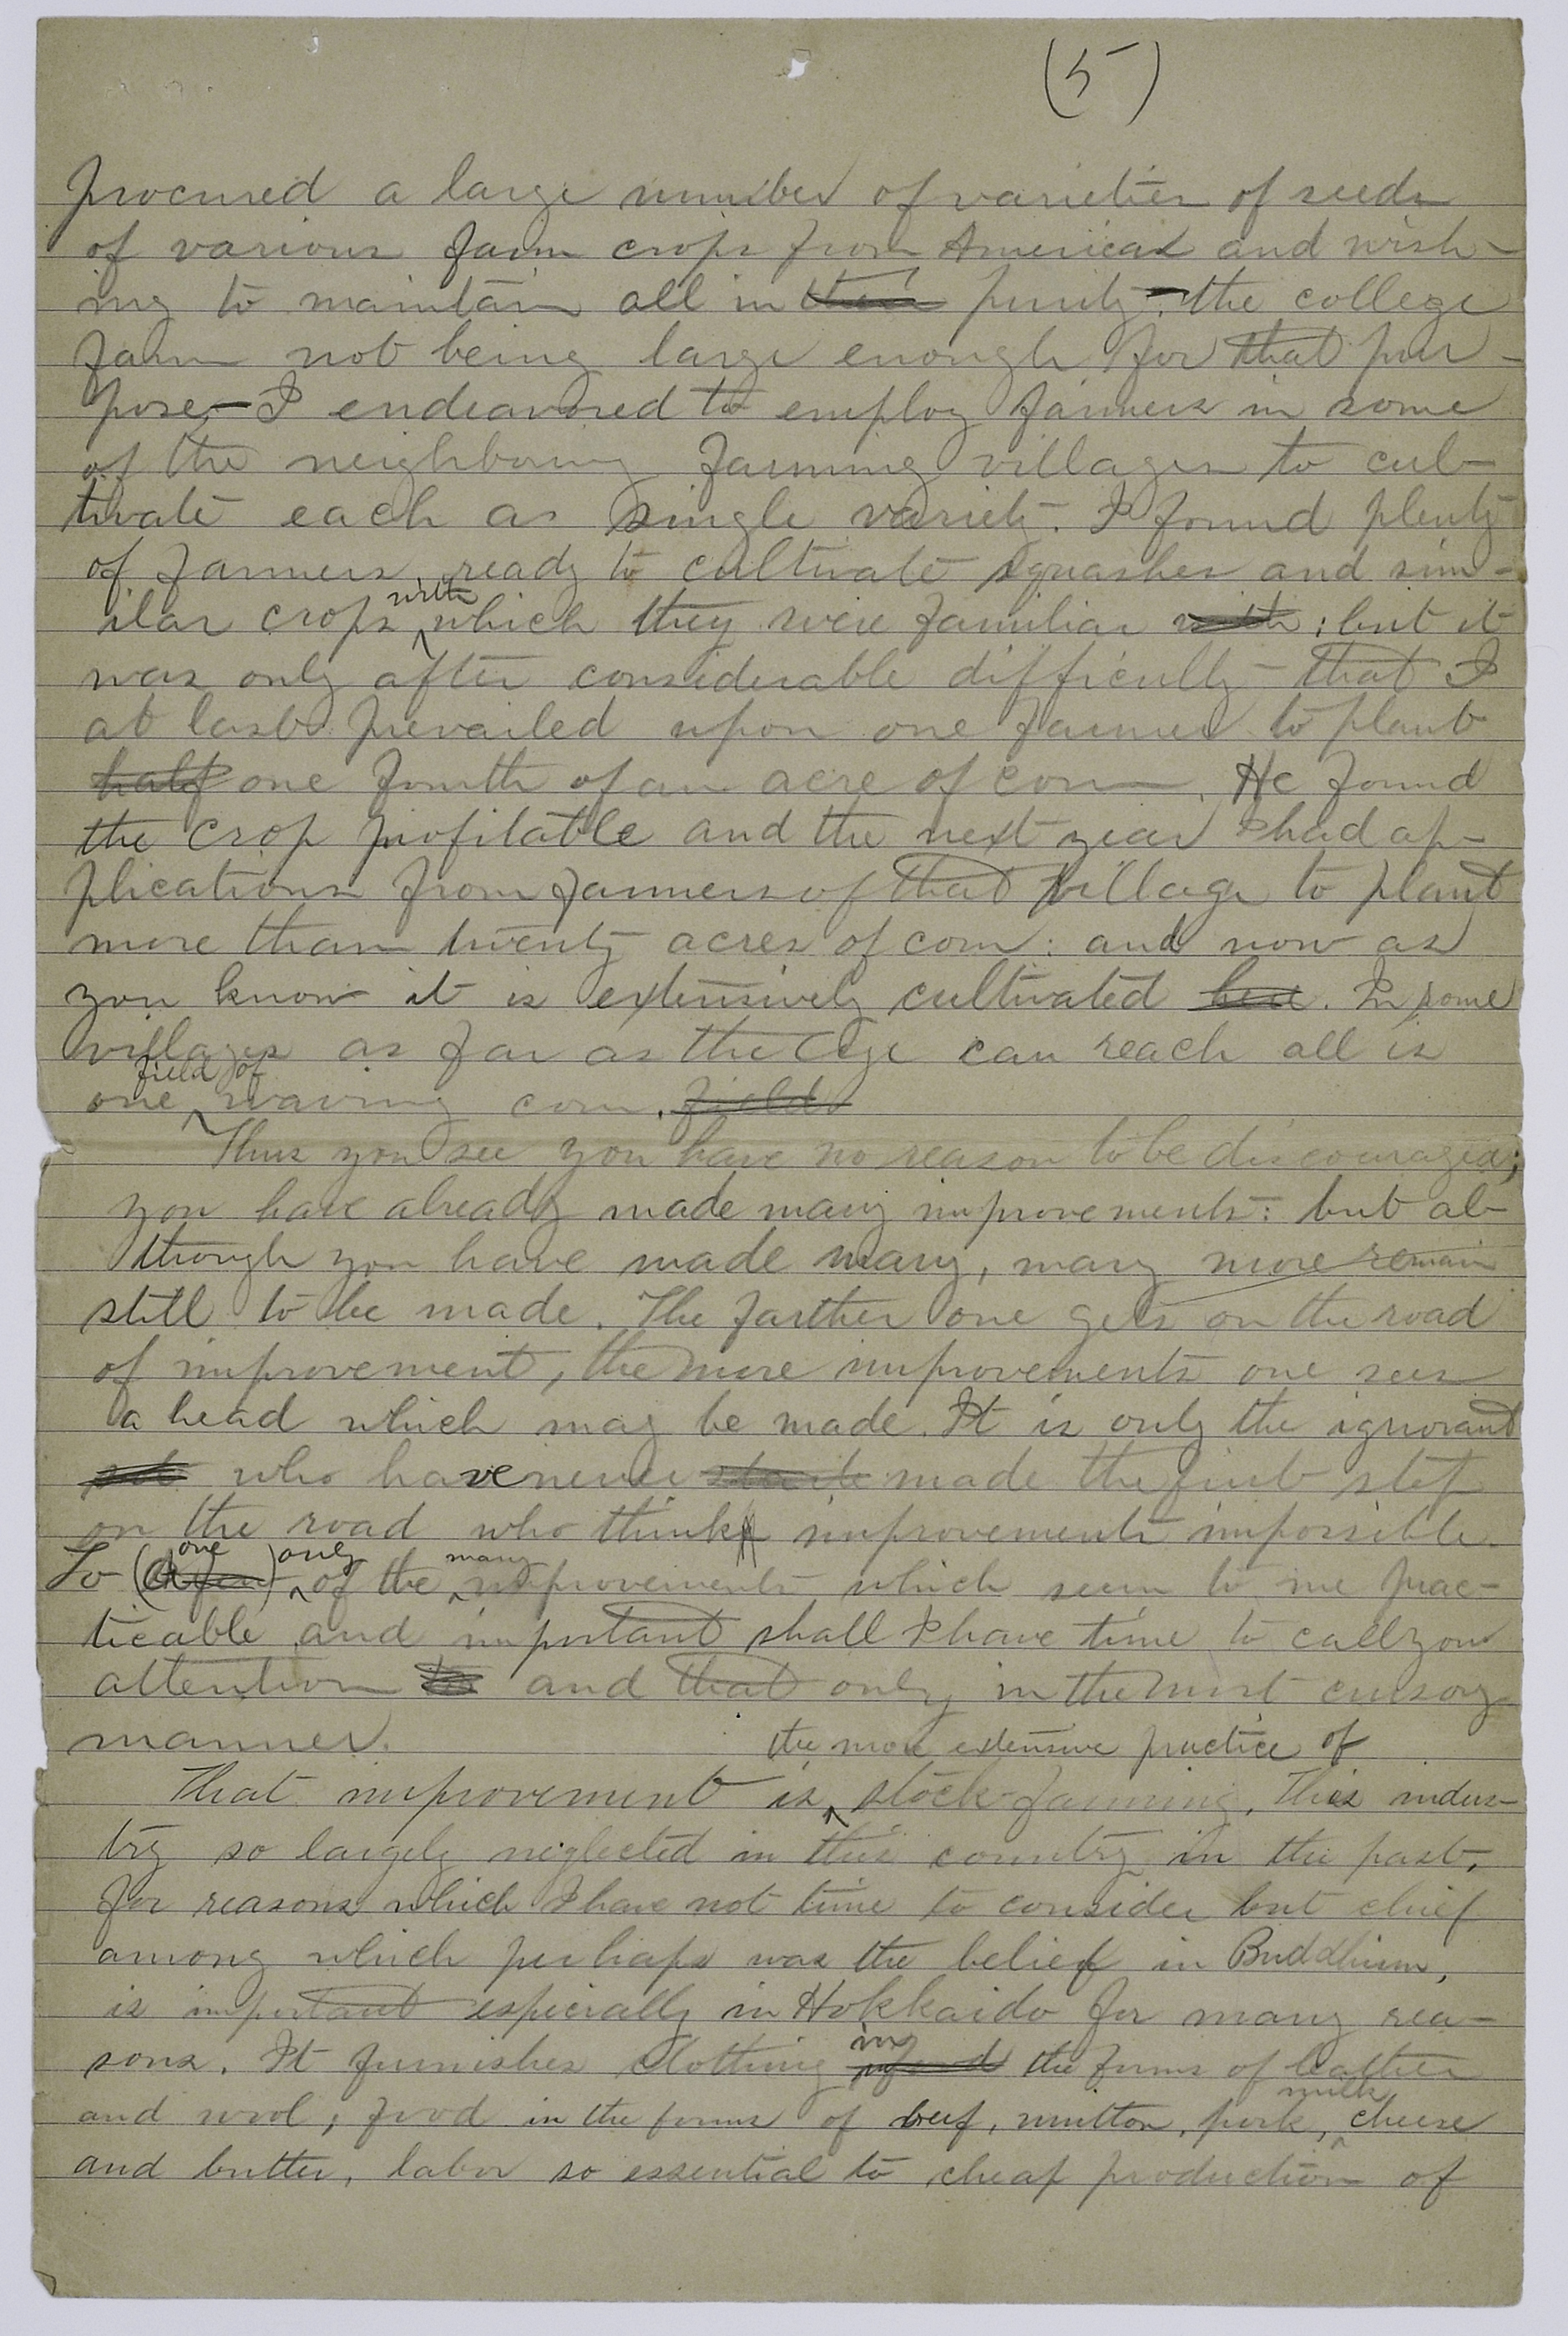 (5)
procured a large number of varieties of seeds
of various farm crops from America and wish-
ing to maintain all in their purity - the college
farm not being large enough for that pur-
pose, - I endeavored to employ farmers in some
of the neighboring farming villages to cul-
tivate each a single variety. I found plenty
of farmers ready to cultivate squashes and sim-
ilar crops with which they were familiar with; but it
was only after considerable difficulty that I
at last prevailed upon one farmer to plant
half one fourth of an acre of corn. He found
the crop profitable and the next year I had ap-
plications from farmers of that village to plant
more than twenty acres of corn: and now as
you know it is extensively cultivated here. In some
villages as far as the eye can reach all is
one field of waving corn. fields
Thus you see you have no reason to be discouraged;
you have already made many improvements: but al-
though you have made many, many more remain
still to be made. The farther one gets on the road
of improvement, the more improvements one sees
a head which may be made. It is only the ignorant
who have never made the first step
on the road who think improvements impossible.
To (a few) one only of the many improvements which seem to me prac-
ticable and important shall I have time to call your
attention to and that only in the most cursory
manner.
That improvement is the more extensive practice of stock-farming. This indus-
try so largely neglected in this country in the past,
for reasons which I have not time to consider but chief
among which perhaps was the belief in Buddhism,
is important especially in Hokkaido for many rea-
sons. It furnishes clothing in the forms of leather
and wool; food in the forms of beef, mutton, pork, milk, cheese
and butter, labor so essential to cheap production of